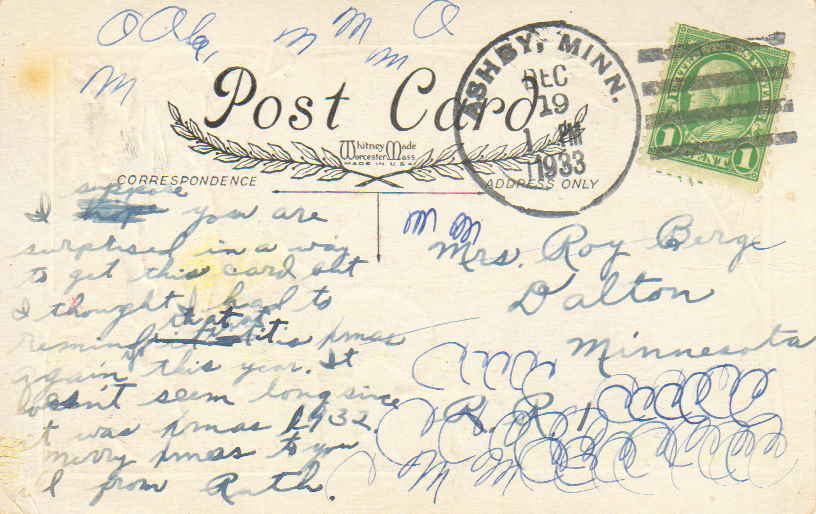 Post Card
Whitney Made
Worcester Mass.
MADE IN U.S.A.
CORRESPONDENCE
ADDRESS ONLY
ASHBY, MINN.
DEC
19
1 PM
1933
UNITED STATES POSTAGE
1 CENT 1
suppose
I hope you are
surprised in a way
to get this card but
I thought I had to
that
remind it is xmas
again this year. It
doesn't seem long since
it was xmas 1932.
Merry xmas to you
all from Ruth.
Mrs. Roy Berge
Dalton
Minnesota
R. R. 1